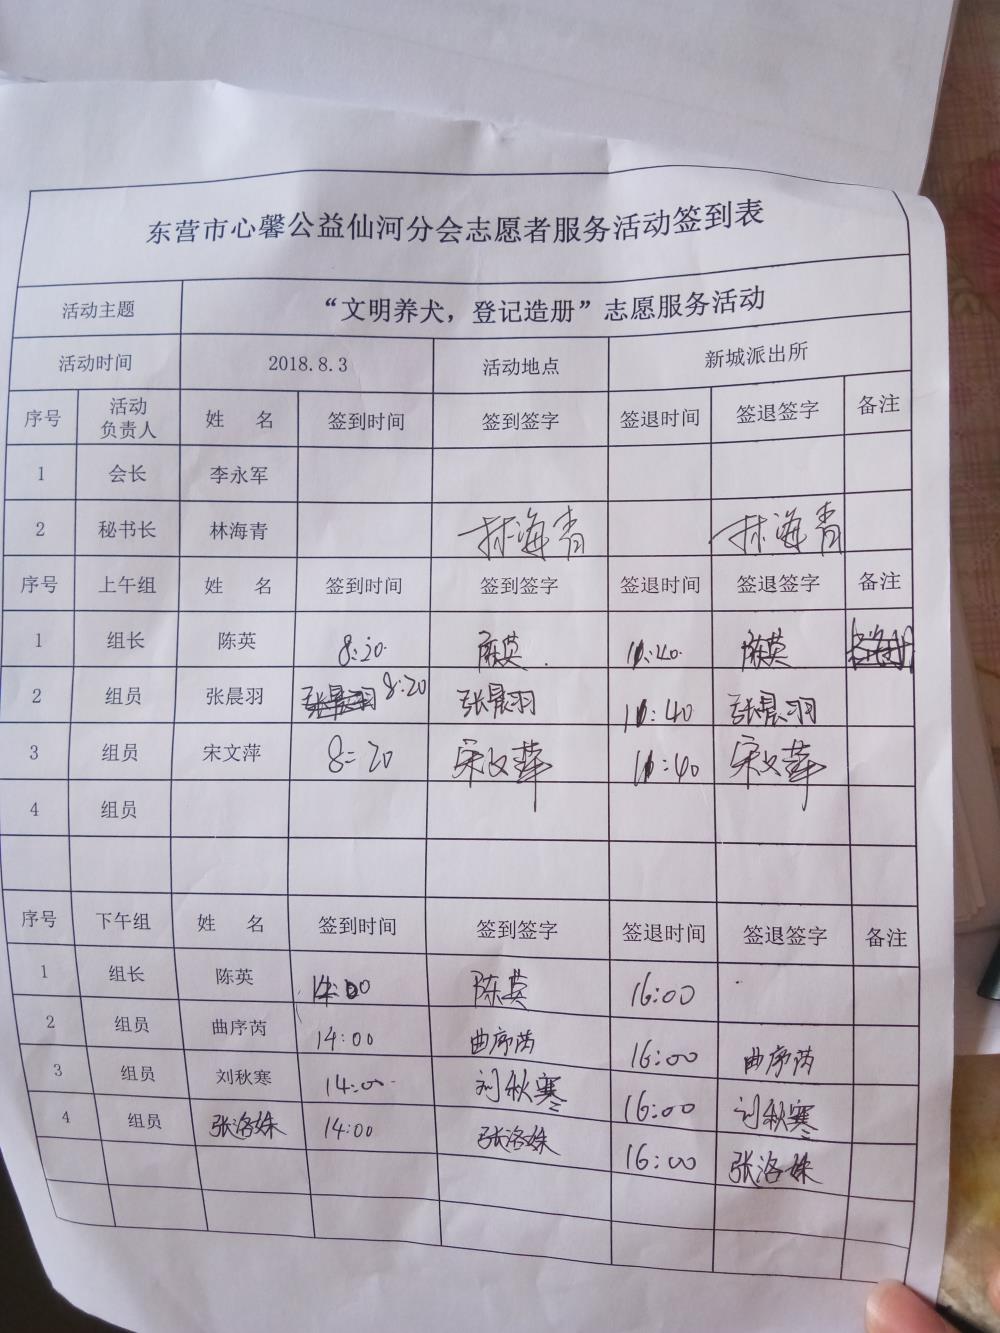 东营市心馨公益仙河分会志愿者服务活动签到表
活动主题 “文明养犬，登记造册”志愿服务活动
活动时间 2018.8.3 活动地点 新城派出所
序号 活动负责人 姓 名 签到时间 签到签字 签退时间 签退签字 备注
1 会长 李永军
2 秘书长 林海青 林海青 林海青
序号 上午组 姓 名 签到时间 签到签字 签退时间 签退签字 备注
1 组长 陈英 8:20 陈英 11:40 陈英
2 组员 张晨羽 8:20 张晨羽 11:40 张晨羽
3 组员 宋文萍 8:20 宋文萍 11:40 宋文萍
4 组员
序号 下午组 姓 名 签到时间 签到签字 签退时间 签退签字 备注
1 组长 陈英 14:00 陈英 16:00
2 组员 曲序芮 14:00 曲序芮 16:00 曲序芮
3 组员 刘秋寒 14:00 刘秋寒 16:00 刘秋寒
4 组员 张洛姝 14:00 张洛姝 16:00 张洛姝